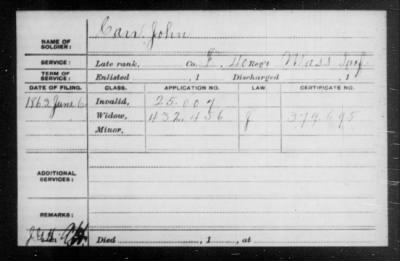 NAME OF SOLDIER: Carr, John
SERVICE: Late rank, Co. F, 40 Reg't Mass Inf.
TERM OF SERVICE: Enlisted , 1 Discharged , 1
DATE OF FILING. CLASS. APPLICATION NO. LAW. CERTIFICATE NO.
1863 June 6 Invalid, 25.007
Widow, 432.456 J 379695
Minor,
ADDITIONAL SERVICES:
REMARKS:
Died , 1 , at